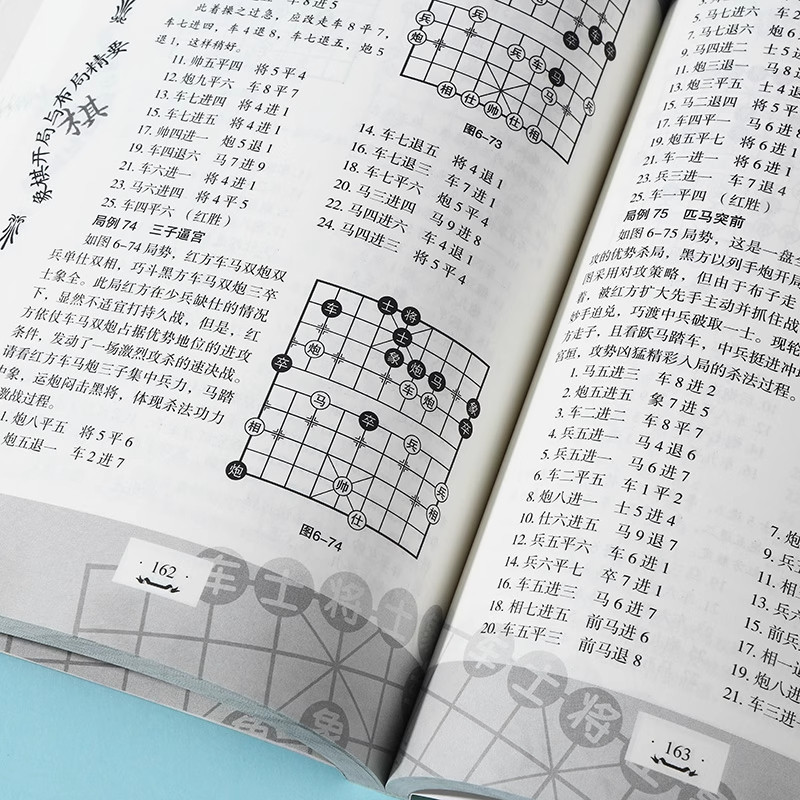 象棋开局与布局精要
棋
此着操之过急，应改走车8平7，
车七进四，车4退8，车七退五，炮5
退1，这样稍好。
11. 帅五平四 将5平4
12. 炮九平六 车8平7
13. 车七进四 将4进1
14. 车七退五 将4退1
15. 车七进五 将4进1
16. 车七退三 车7进1
17. 帅四进一 炮5退1
18. 车七平六 炮5平4
19. 车四退六 马7进9
20. 马三进四 马9进8
21. 车六进一 将4进1
22. 马四进六 车4退1
23. 马六进四 将4平5
24. 马四进三 将5平4
25. 车四平六 （红胜）
图6-73
局例 74 三子逼宫
如图6-74局势，红方车马双炮双
兵单仕双相，巧斗黑方车马双炮三卒
士象全。此局红方在少兵缺仕的情况
下，显然不适宜打持久战，但是，红
方依仗车马双炮占据优势地位的进攻
条件，发动了一场激烈攻杀的速决战。
请看红方车马炮三子集中兵力，马踏
中象，运炮闷击黑将，体现杀法功力
激战过程。
1. 炮八平五 将5平6
炮五退一 车2进7
图6-74
162
5. 马七进六 车
7. 马七退六 炮6
9. 马四进二 士5
11. 炮三退一 马8
13. 炮三平五 士4退
15. 马二退四 将5平
17. 车四平一 马6进
19. 炮五平七 将6进1
21. 车一进一 将6进1
23. 兵三进一 车7退4
25. 车一平四 （红胜）
局例 75 匹马突前
如图6-75局势，这是一盘
攻的优势杀局，黑方以列手炮开局
图采用对攻策略，但由于布子走
着，被红方扩大先手主动并抓住战
妙手迫兑，巧渡中兵破取一士。现轮
方走子，且看跃马踏车，中兵挺进冲
宫垣，攻势凶猛精彩入局的杀法过程。
1. 马五进三 车8进2
2. 炮五进五 象7进5
3. 车二进二 车8平7
4. 兵五进一 马4退6
5. 兵五进一 马6进7
6. 车二平五 车1平2
7. 炮
8. 炮八进一 士5进4
9. 兵
10. 仕六进五 马9退7
11. 相
12. 兵五平六 车6进1
13. 兵六
14. 兵六平七 卒7进1
15. 前兵
16. 车五进三 马6进7
17. 相一
18. 相七进五 前马进6
19. 炮八进
20. 车五平三 前马退8
21. 车三进一
163